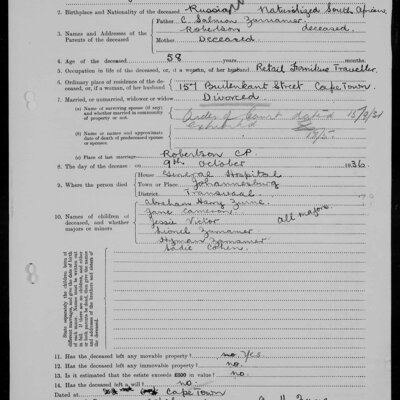 2. Birthplace and Nationality of the deceased Russian Naturalized South African
3. Names and Addresses of the Parents of the deceased
Father C. Salmon Zumamer
Robertson deceased
Mother Deceased
4. Age of the deceased 58
5. Occupation in life of the deceased, or, if a woman, of her husband Retail Furniture Traveller.
6. Ordinary place of residence of the deceased, or, if a woman, of her husband 157 Buitenkant Street Cape Town.
7. Married, or unmarried, widower or widow Divorced
(a) Name of surviving spouse (if any) and whether married in community of property or not Order of Court dated 15/9/31
(b) Name or names and approximate date of death of predeceased spouse or spouses
(c) Place of last marriage Robertson C.P.
8. The day of the decease 9th October 1936.
9. Where the person died
House General Hospital
Town or Place Johannesburg
District Transvaal
10. Names of children of deceased, and whether majors or minors
Abraham Harry Zume
Jane Cameron
Jessie Victor
Lionel Zumamer
Hyman Zumamer
Sadie Cohen
All majors
State separately the children born of different marriages, and give the date of birth of each minor. Names must be written out in full. If there are no children, and either or both parents be dead, then give the names and addresses of the brothers and sisters of the deceased.
11. Has the deceased left any movable property? no. Yes
12. Has the deceased left any immovable property? no.
13. Is it estimated that the estate exceeds £300 in value? no.
14. Has the deceased left a will? no.
Dated at Cape Town